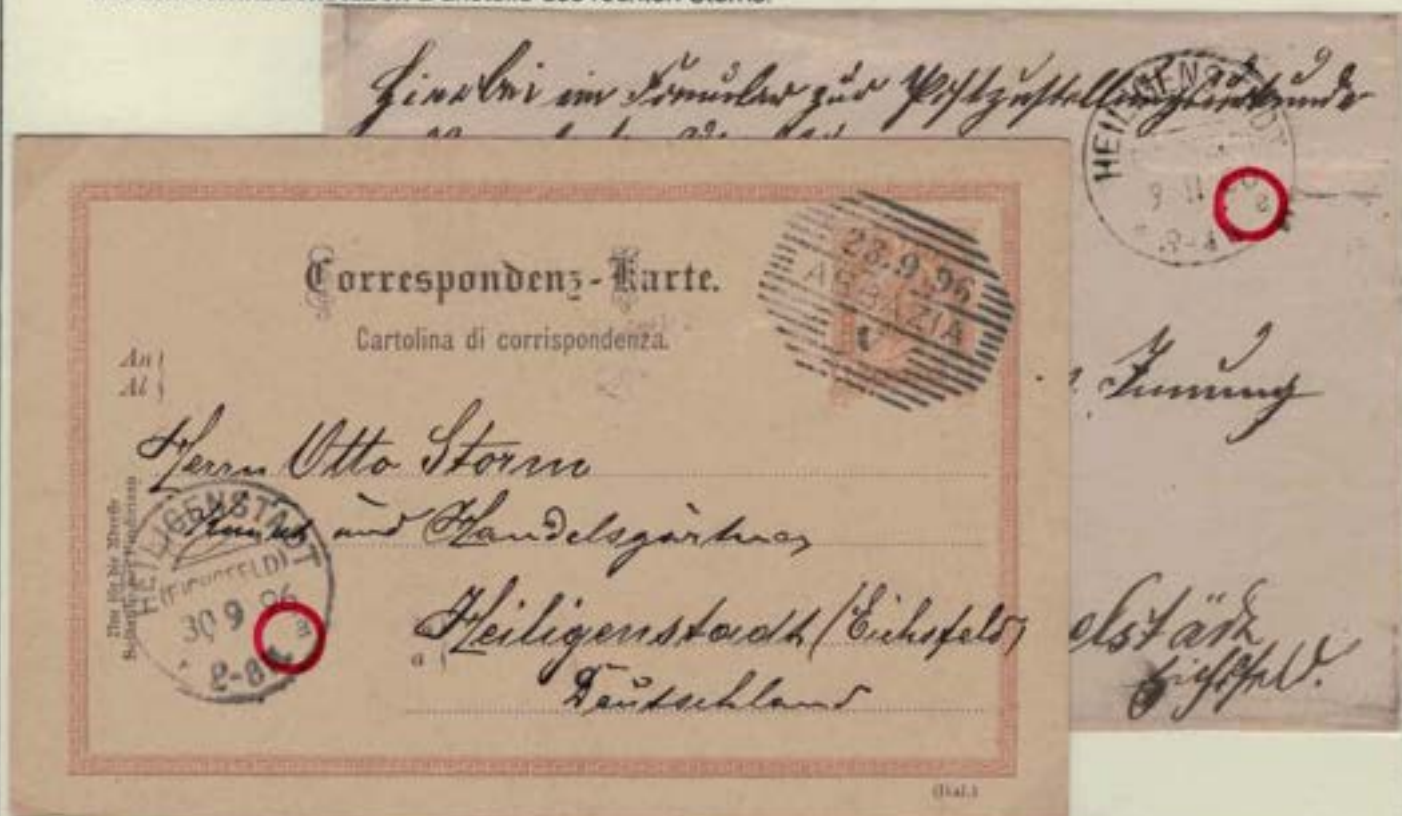 anstelle des rechten Sterns.
Hierbei ein Formular zur Postzustellungsurkunde
HEILIGENSTADT
9 11
Innung
elstädt
Eichsfeld.
Correspondenz-Karte.
Cartolina di corrispondenza.
28.9.96
ABBAZIA
An
Al
Herrn Otto Storm
Kunst und Handelsgärtner
Heiligenstadt (Eichsfeld)
a
Deutschland
Nur für die Adresse
HEILIGENSTADT
(EICHSFELD)
30 9 96
(Ital.)